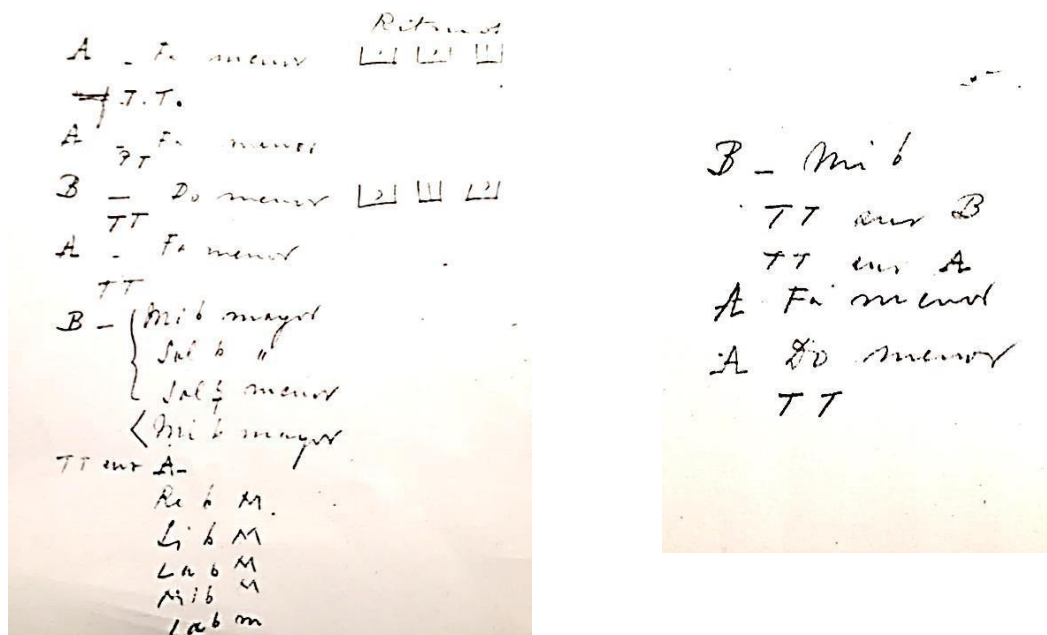 Ritmos
A - Fa menor
T.T.
A - Fa menor
TT
B - Do menor
TT
A - Fa menor
TT
B - Mi b mayor
Sol b "
Sol menor
Mi b mayor
TT sur A -
Re b M.
Si b M
La b M
Mi b M
La b m
B - Mi b
TT sur B
TT sur A
A Fa menor
A Do menor
TT